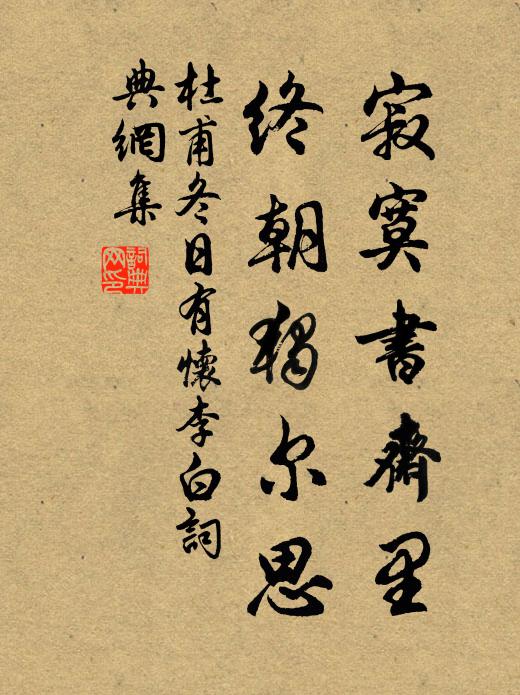 寂寞書齋里
終朝獨尔思
杜甫冬日有懷李白詞
典網集
詞典
网印